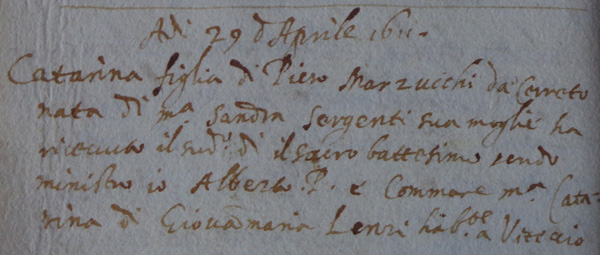 Adi 29 d Aprile 1611.
Catarina figlia di Piero Marzucchi da Cerreto
nata di m.ª Sandra Sergenti sua moglie ha
ricevuto il sud.º di il sacro battesimo sendo
ministro io Alberto. P. e Commare m.ª Cata-
rina di Giovãmaria Lenzi hab.te a